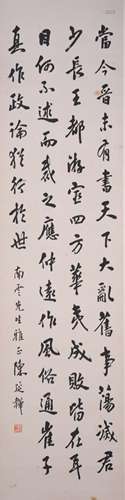 當今晉未有書天下大亂舊事蕩滅君
少長王都游宦四方華戎成敗皆在耳
目何不述而裁之應仲遠作風俗通崔子
真作政論猶行於世
南雲先生雅正陳延韡